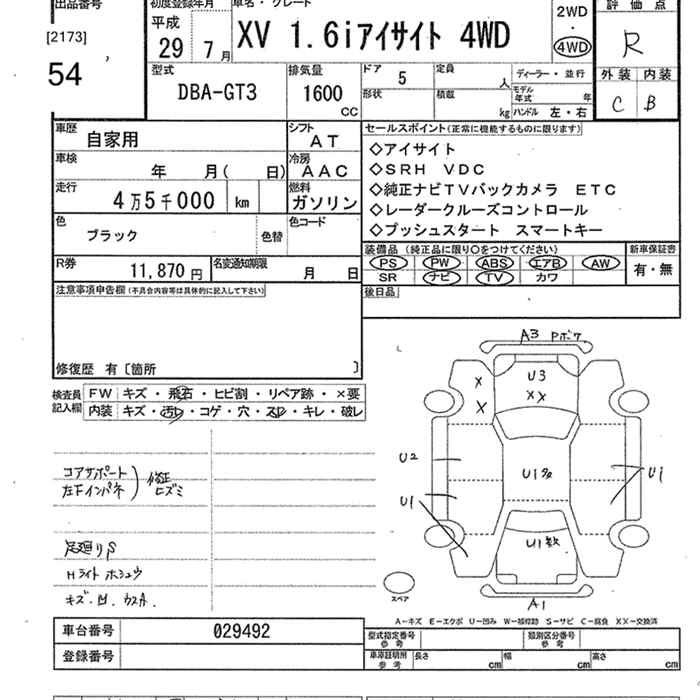 出品番号
[2173]
54
初度登録年月
平成
29年 7月
車名・グレード
XV 1.6iアイサイト 4WD
2WD
・
4WD
評価点
R
外装 内装
C B
型式
DBA-GT3
排気量
1600
CC
ドア 5
定員 人
形状
積載 kg
ディーラー・並行
モデル年式 年
ハンドル 左・右
車歴
自家用
シフト
AT
車検
年 月( 日)
冷房
AAC
走行
4万5千000 km
燃料
ガソリン
色
ブラック
色替
色コード
R券
11,870円
名変通知期限
月 日
セールスポイント(正常に機能するものに限ります)
◇アイサイト
◇SRH VDC
◇純正ナビTVバックカメラ ETC
◇レーダークルーズコントロール
◇プッシュスタート スマートキー
装備品 (純正品に限り○をつけてください)
PS PW ABS エアB AW
SR ナビ TV カワ
新車保証書
有・無
後日品
注意事項申告欄(不具合内容等は具体的に記入して下さい)
修復歴 有〔箇所 〕
検査員記入欄
FW キズ・飛石・ヒビ割・リペア跡・×要
内装 キズ・汚レ・コゲ・穴・スレ・キレ・破レ
コアサポート
左下インパネ
修正
ヒズミ
足廻りS
Hライト ホシュウ
キズ.凹.カスA.
A3 Pボケ
U3
X
X
XX
U2
U1多
U1
U1
U1数
A1
スペア
A-キズ E-エクボ U-凹み W-補修跡 S-サビ C-腐食 XX-交換済
車台番号
029492
登録番号
型式指定番号
参考
類別区分番号
参考
車庫証明用
参考
長さ cm
幅 cm
高さ cm